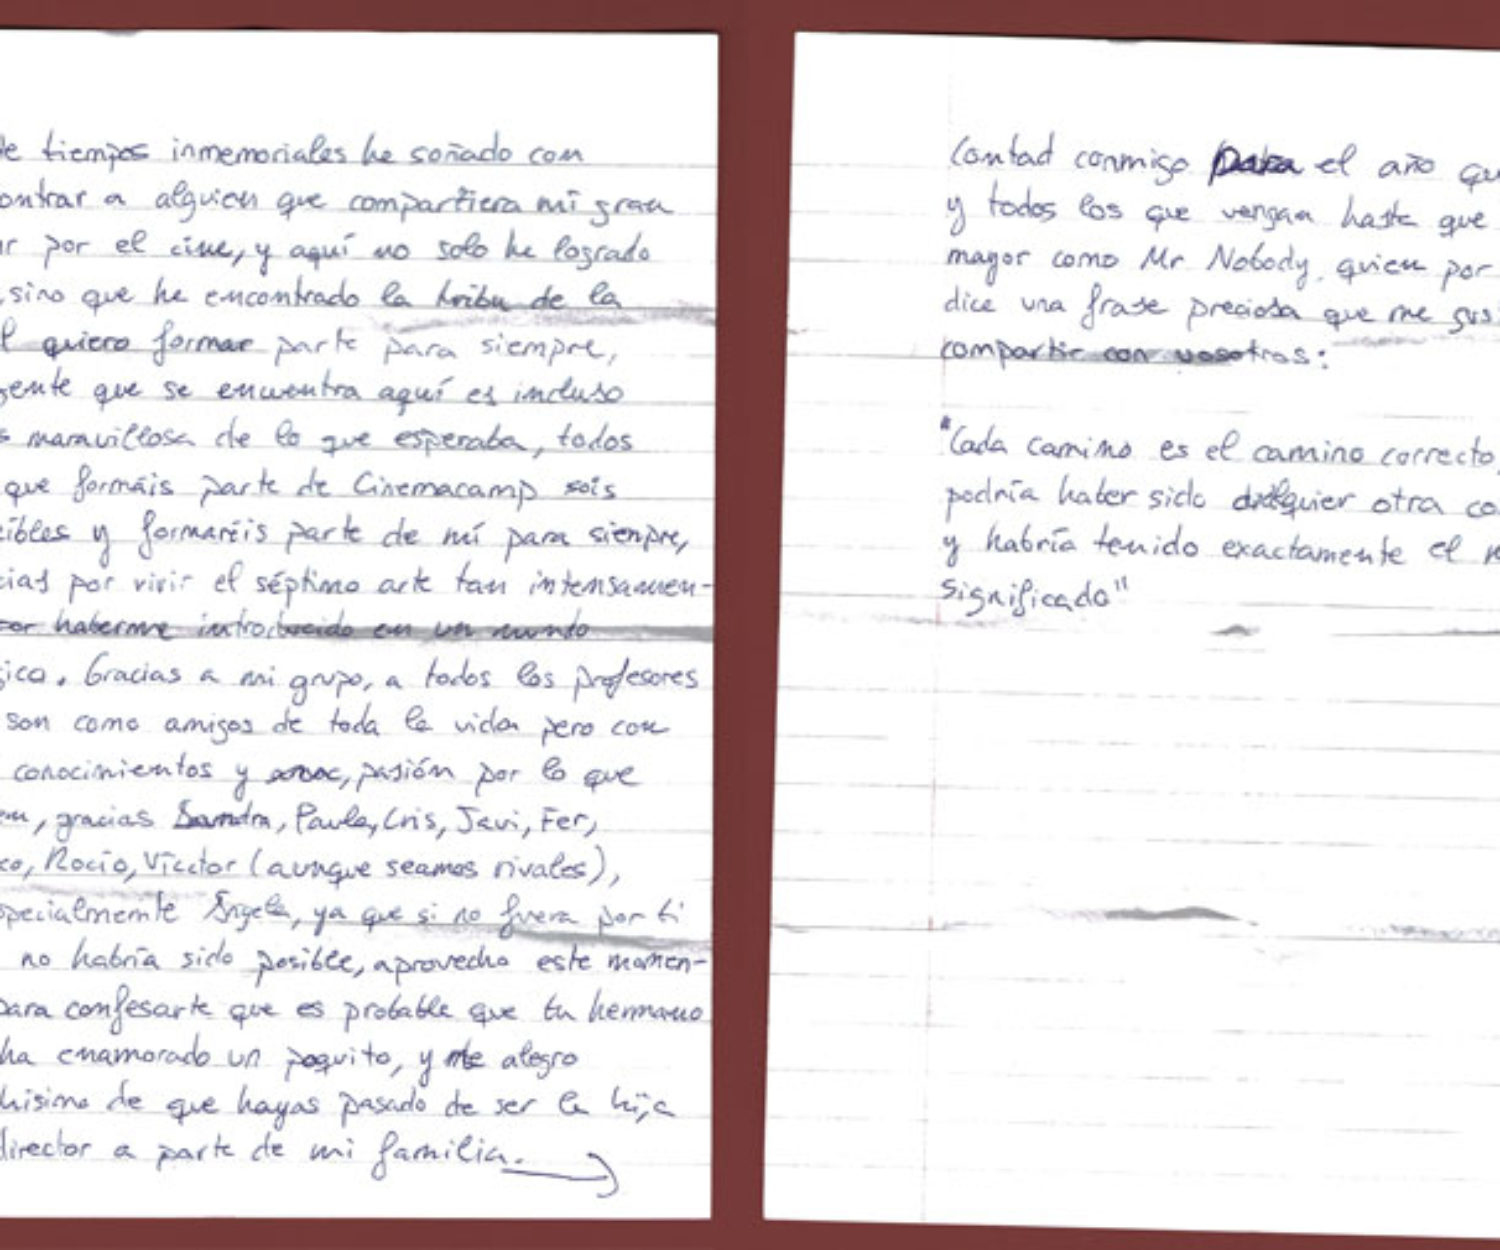 de tiempos inmemoriales he soñado con
ontrar a alguien que compartiera mi gran
r por el cine, y aquí no solo he logrado
, sino que he encontrado la tribu de la
l quiero formar parte para siempre,
gente que se encuentra aquí es incluso
s maravillosa de lo que esperaba, todos
que formáis parte de Cinemacamp sois
cibles y formaréis parte de mí para siempre,
cias por vivir el séptimo arte tan intensamen-
por haberme introducido en un mundo
gico. Gracias a mi grupo, a todos los profesores
son como amigos de toda la vida pero con
conocimientos y pasión por lo que
en, gracias Sandra, Paula, Cris, Javi, Fer,
co, Rocío, Vícctor (aunque seamos rivales),
specialmente Ángela, ya que si no fuera por ti
no habría sido posible, aprovecho este momen-
para confesarte que es probable que tu hermano
ha enamorado un poquito, y me alegro
hisimo de que hayas pasado de ser la hija
director a parte de mi familia.
Contad conmigo para el año qu
y todos los que vengan hasta que
mayor como Mr Nobody, quien por
dice una frase preciosa que me gus
compartir con vosotros:
"Cada camino es el camino correcto,
podría haber sido cualquier otra co
y habría tenido exactamente el m
significado"